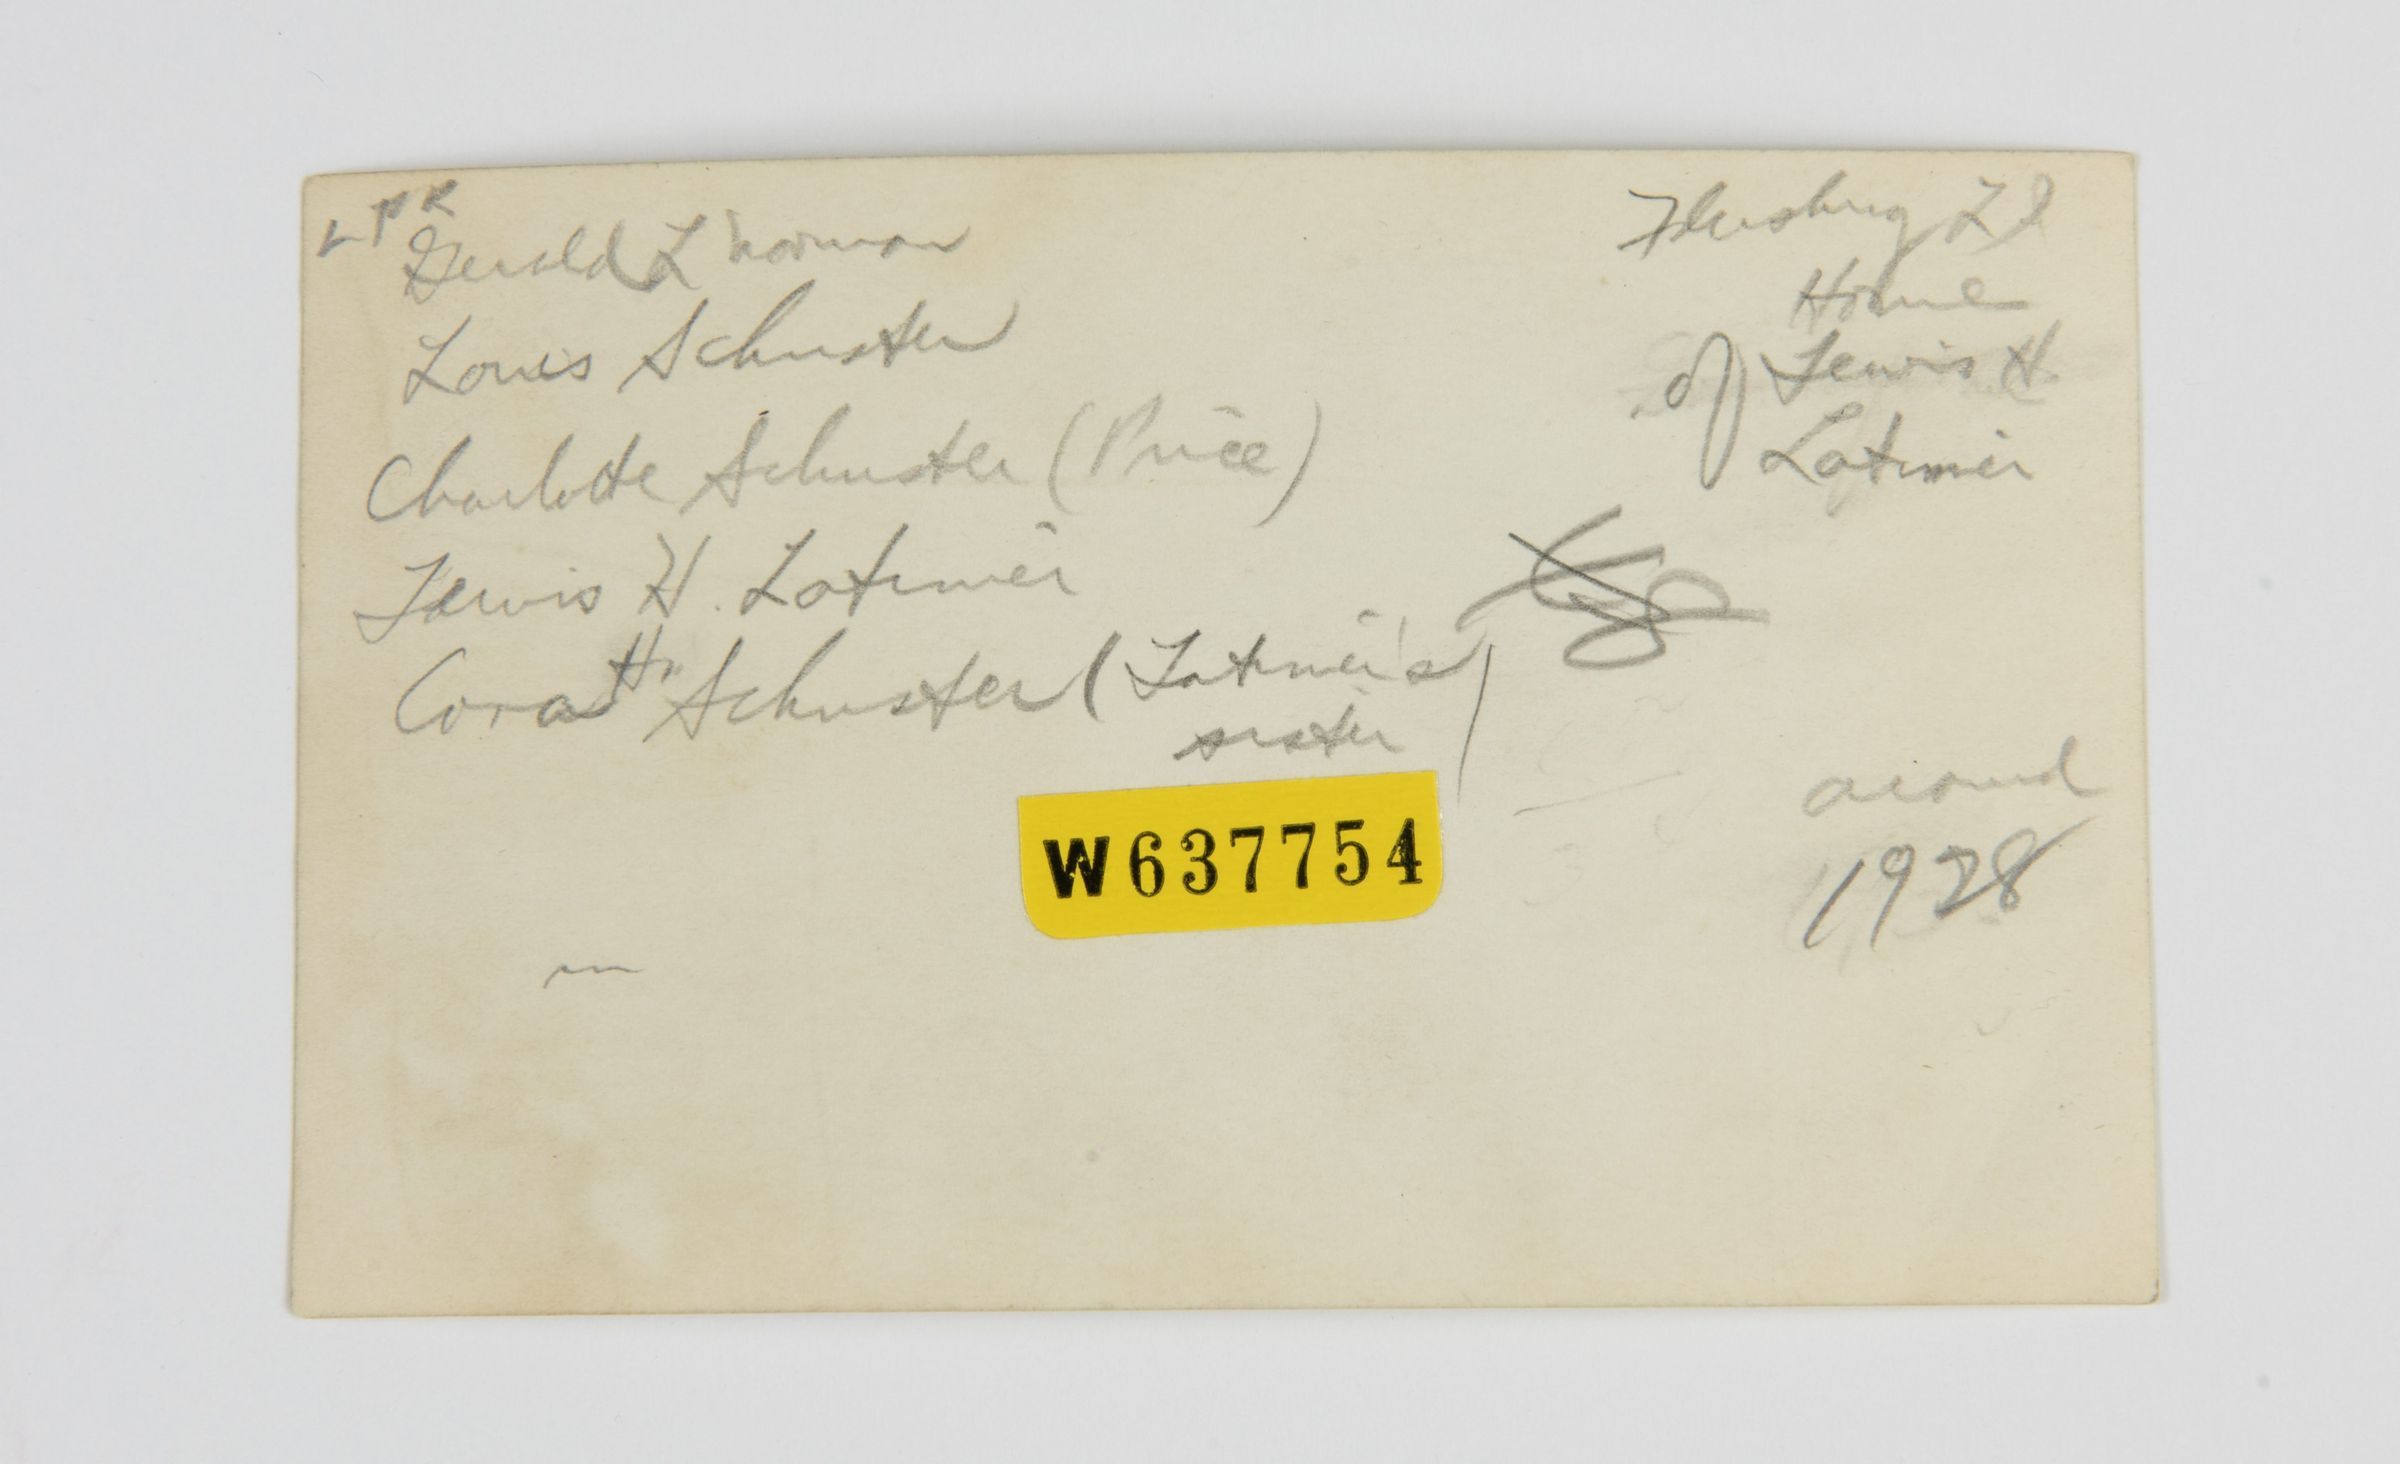 L P R
Gerald L Norman
Louis Schuster
Charlotte Schuster (Price)
Lewis H. Latimer
Cora H. Schuster (Latimer's
sister)
Flushing L I
Home
of Lewis H.
Latimer
around
1928
W637754